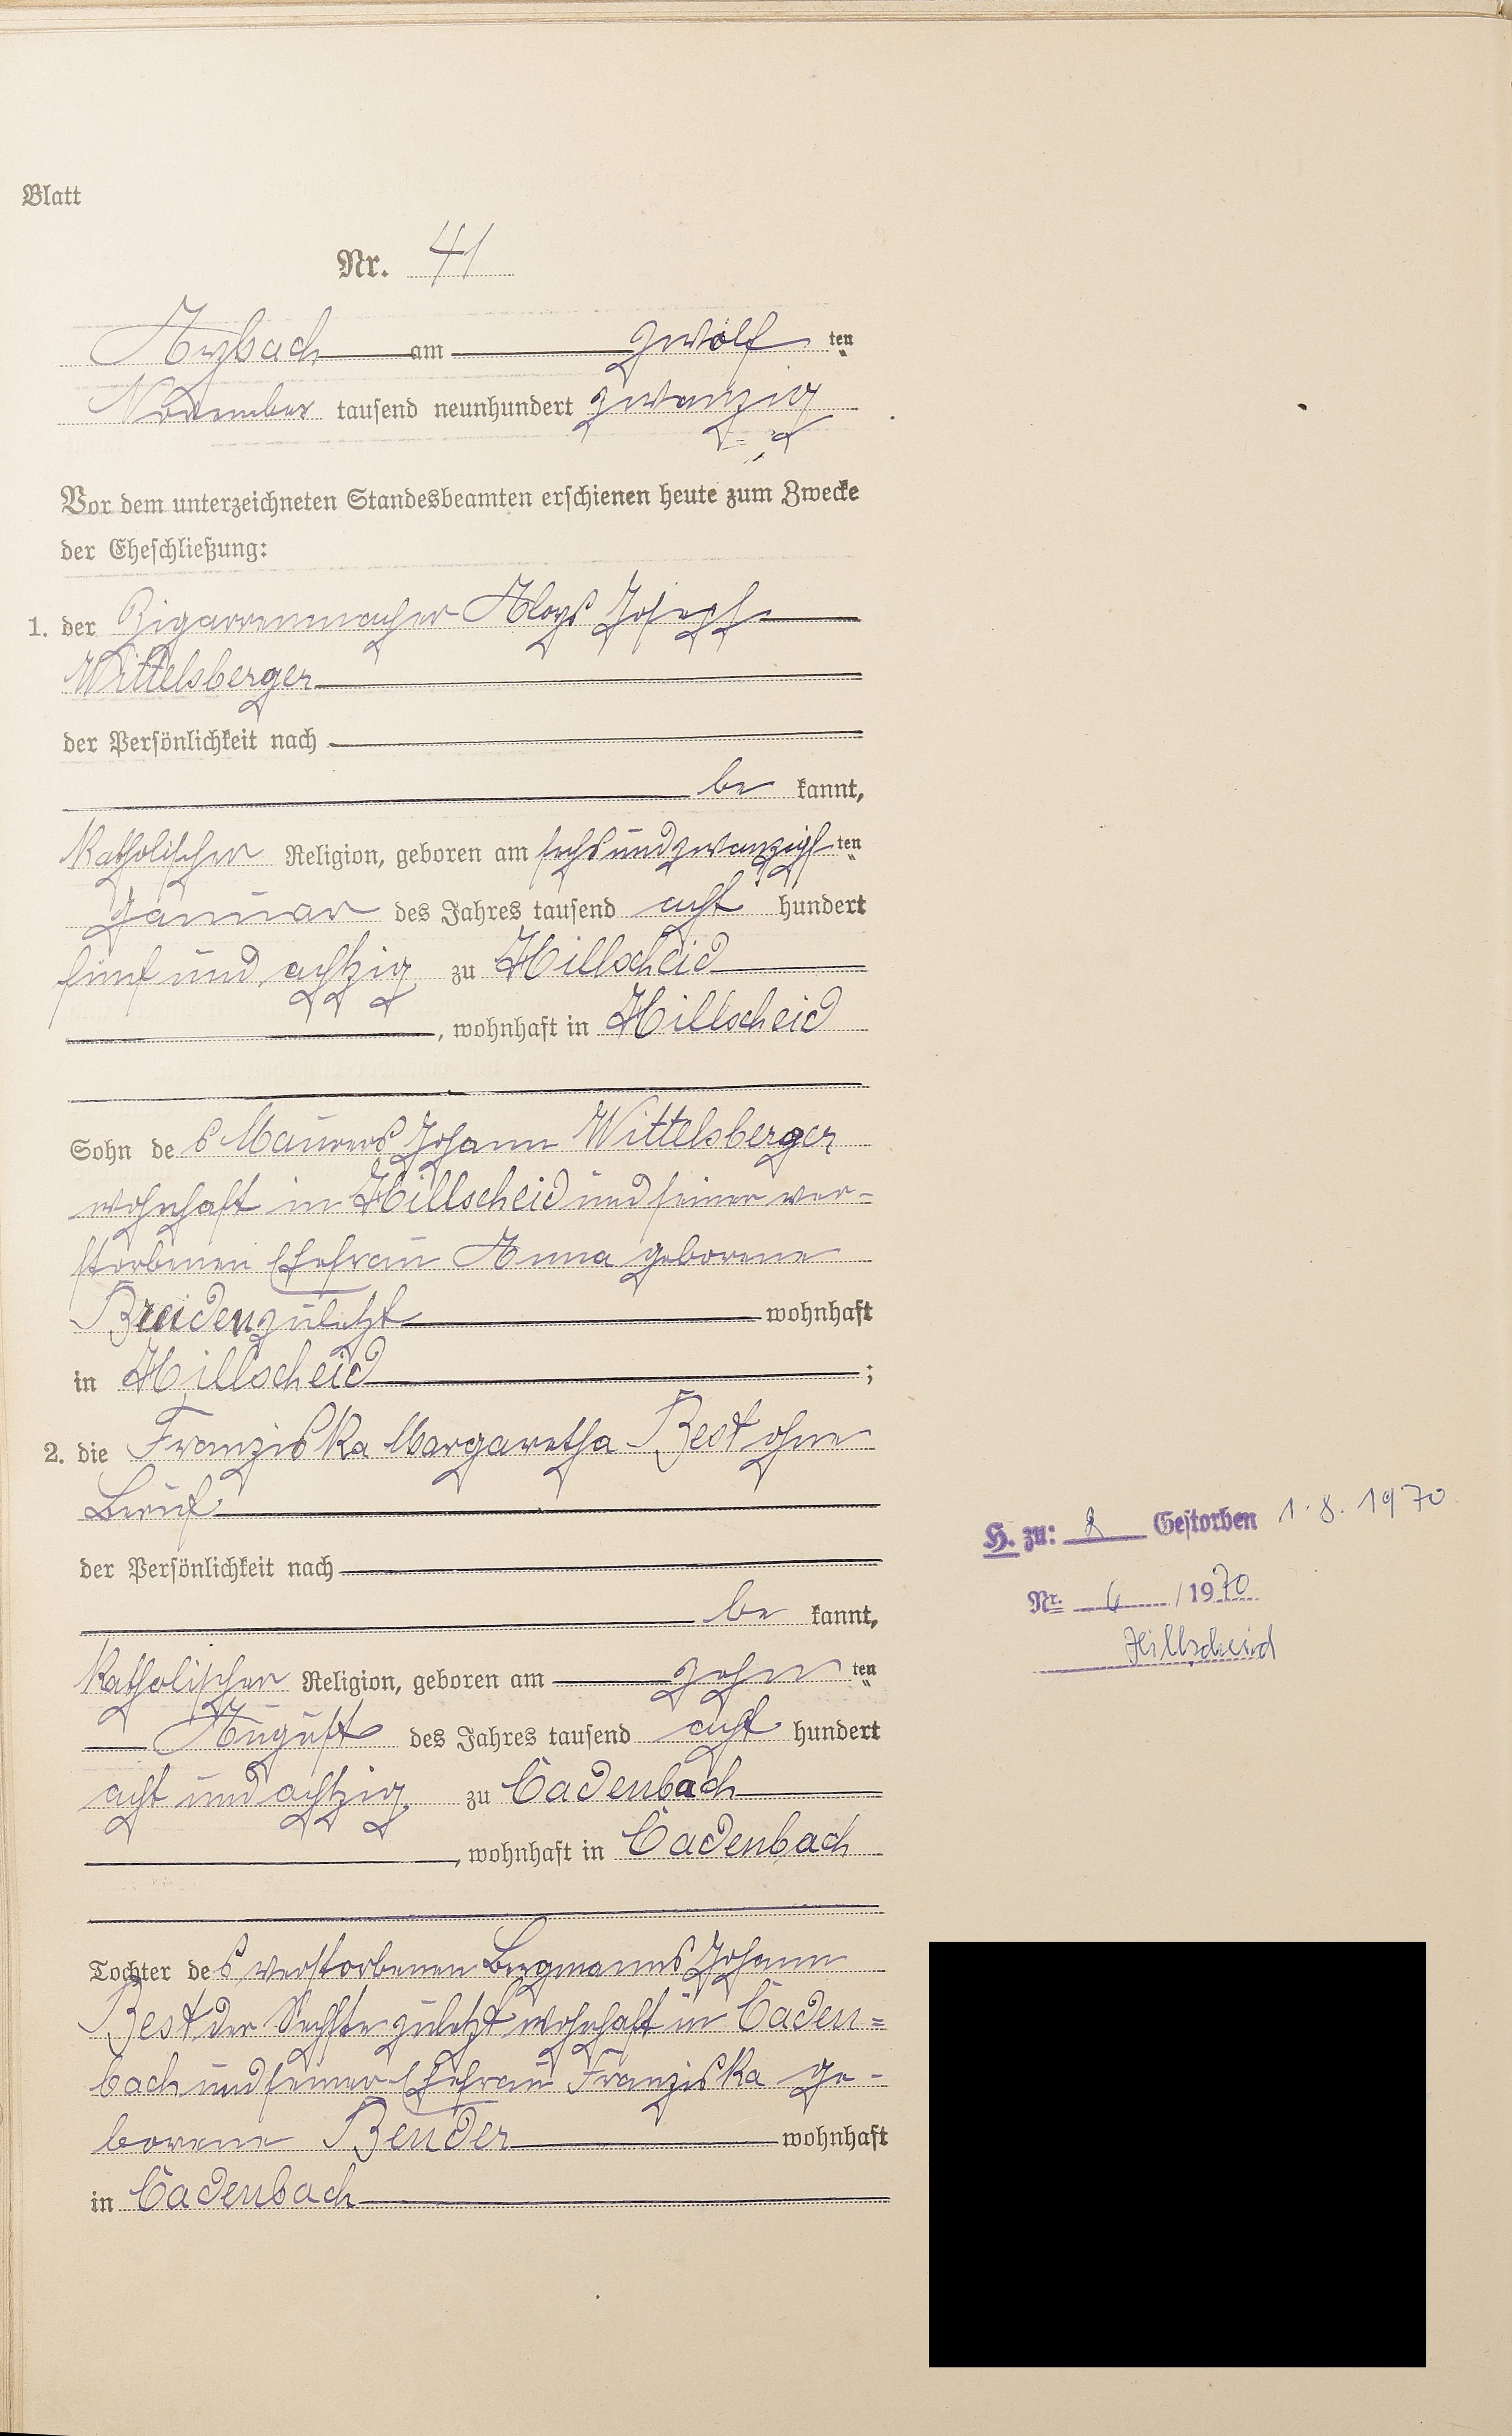 Blatt
Nr. 41
Arzbach am zwölf ten
November tausend neunhundert zwanzig
Vor dem unterzeichneten Standesbeamten erschienen heute zum Zwecke
der Eheschließung:
1. der Zigarrenmacher Aloys Joseph
Wittelsberger
der Persönlichkeit nach
be kannt,
katholischer Religion, geboren am sechsundzwanzigsten
Januar des Jahres tausend acht hundert
fünf und achtzig zu Hillscheid
, wohnhaft in Hillscheid
Sohn des Maurers Johann Wittelsberger
wohnhaft in Hillscheid und seiner ver-
storbenen Ehefrau Anna geborene
Breiden zuletzt wohnhaft
in Hillscheid ;
2. die Franziska Margaretha Best ohne
Beruf
der Persönlichkeit nach
be kannt,
katholischer Religion, geboren am zehn ten
August des Jahres tausend acht hundert
acht und achtzig zu Cadenbach
, wohnhaft in Cadenbach
Tochter des verstorbenen Bergmanns Johann
Best der Sechste zuletzt wohnhaft in Caden=
bach und seiner Ehefrau Franziska ge-
borene Bender wohnhaft
in Cadenbach
H. zu: 2 Gestorben 1.8.1970
Nr. 6 / 1970
Hillscheid